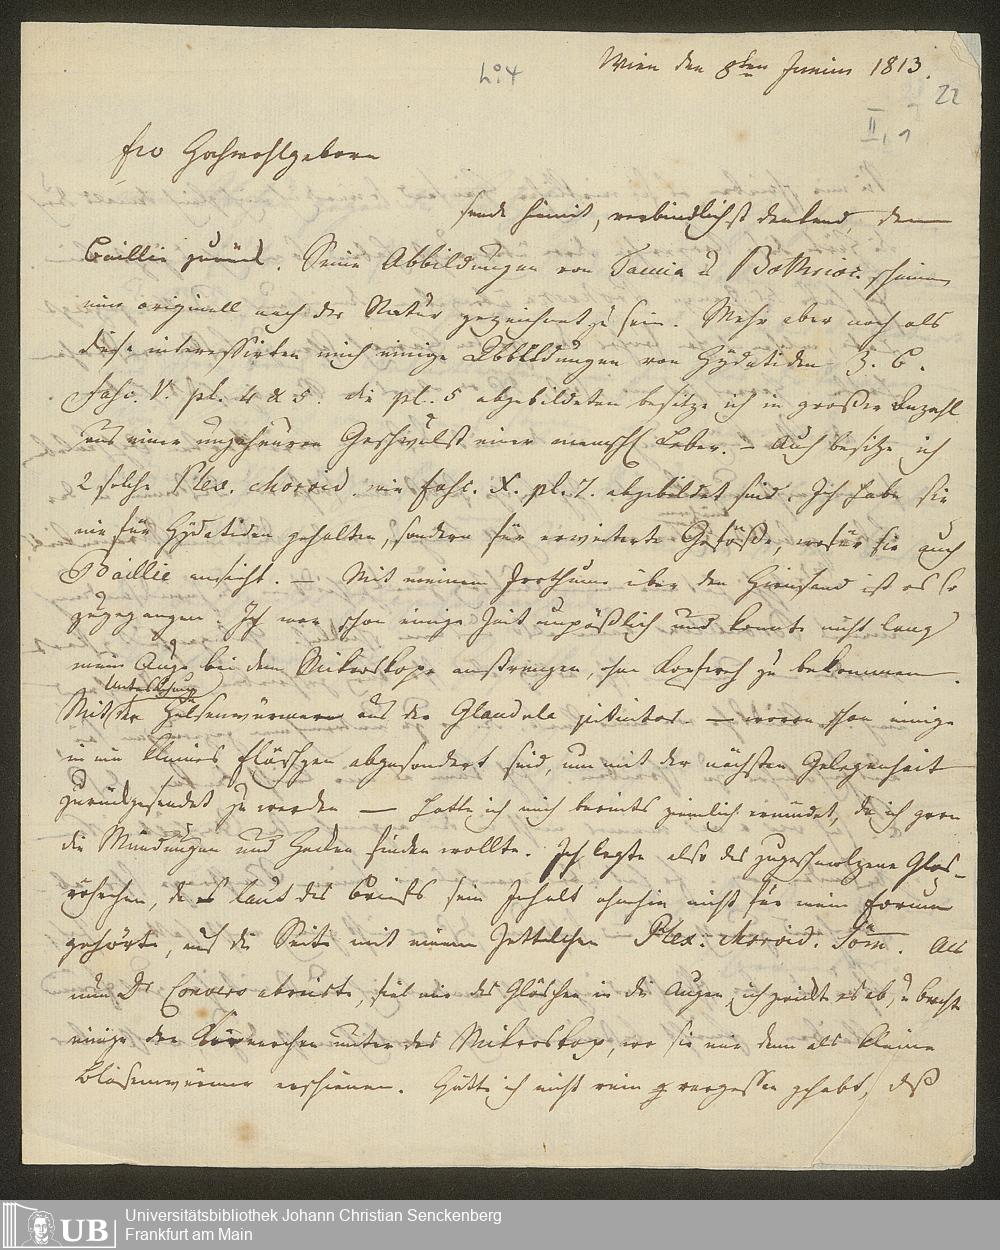 Wien den 8ten Junius 1813.
22
II, 1
Ew Hochwohlgeborn
sende hiemit, verbindlichst dankend, den
Baillie zurück. Seine Abbildungen von Taenia u Bothrioc. scheinen
mir originell nach der Natur gezeichnet zu sein. Mehr aber noch als
diese interessirten mich einige Abbildungen von Hydatiden z. B.
Fasc. V. pl. 4 & 5. die pl. 5 abgebildeten besitze ich in großer Anzahl
aus einer ungeheuren Geschwulst einer menschl Leber. – Auch besitze ich
2 solche Plex. choroid. wie Fasc. X. pl. 7. abgebildet sind. Ich habe sie
nie für Hydatiden gehalten, sondern für erweiterte Gefäße, wofür sie auch
Baillie ansieht. — Mit meinem Irrthume über den Hirnsand ist es so
zugegangen. Ich war schon einige Zeit unpäßlich und konnte nicht lang
mein Auge bei dem Mikroskope anstrengen, ohne Kopfweh zu bekommen.
Untersuchung
Mit der Hülsenwürmer aus der Glandula pituitar. — wovon schon einige
in ein kleines Fläschgen abgesondert sind, um mit der nächsten Gelegenheit
zurückgesendet zu werden — hatte ich mich bereits ziemlich ermüdet, da ich gern
die Mündungen und Hacken finden wollte. Ich legte also das zugeschmolzene Glas-
röhrchen, da es laut des Briefs sein Inhalt ohnehin nicht für mein Forum
gehörte, auf die Seite mit einem Zettelchen Plex. choroid. Söm. Als
nun Dr abreiste, fiel mir das Gläschen in die Augen, ich zwickte es ab, u brachte
einige der Körnerchen unter das Mikroskop, wo sie mir denn als kleine
Blasenwürmer erschienen. Hätte ich nicht rein vergessen gehabt, daß
UB Universitätsbibliothek Johann Christian Senckenberg
Frankfurt am Main